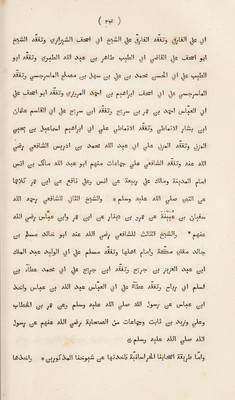 ابى على الفارقى وتفقد الفارقى على الشيخ ابى اسحق الشيرازى وتفقد الشيخ
ابو اسحق على القاضى ابى الطيب طاهر بن عبد الله الطبرى وتفقد ابو
الطيب على ابى الحسن محمد بن على بن سهل بن مصلح الماسرجسى وتفقد
الماسرجسى على ابى اسحق ابراهيم بن احمد المروزى وتفقد ابو اسحق على
ابى العباس احمد بن عمر بن سريج وتفقد ابن سريج على ابى القاسم عثمان
ابن بشار الانماطى وتفقد الانماطى على ابى ابراهيم اسماعيل بن يحيى
المزنى وتفقد المزنى على ابى عبد الله محمد بن ادريس الشافعى رضى
الله عند وتفقد الشافعى على جماعات منهم ابو عبد الله مالك بن انس
امام المدينة ومالك على ربيعة عن انس وعلى نافع عن ابن عمر كلاهما
عن النبى صلى الله عليد وسلم * والشيخ الثانى للشافعى رحمد الله
سفيان بن عيينة عن عمرو بن دينار عن ابن عمر وابن عباس رضى الله
عنهم * والشيخ الثالث للشافعى رضى الله عند ابو خالد مسلم بن
خالد مفتى مكة وامام اهلها وتفقد مسلم على ابى الوليد عبد الملك
ابن عبد العزيز بن جريج وتفقد ابن جريج على ابى محمد عطاء بن
اسلم ابى رباح وتفقد عطاء على ابى العباس عبد الله بن عباس واخذ
ابن عباس عن رسول الله صلى الله عليد وسلم وعن عمر بن الخطاب
وعلى وزيد بن ثابت وجماعات من الصحابة رضى الله عنهم عن رسول
الله صلى الله عليد وسلم *
واما طريقة اصحابنا الخراسانيين فاخذتها عن شيوخنا المذكورين * واخذها